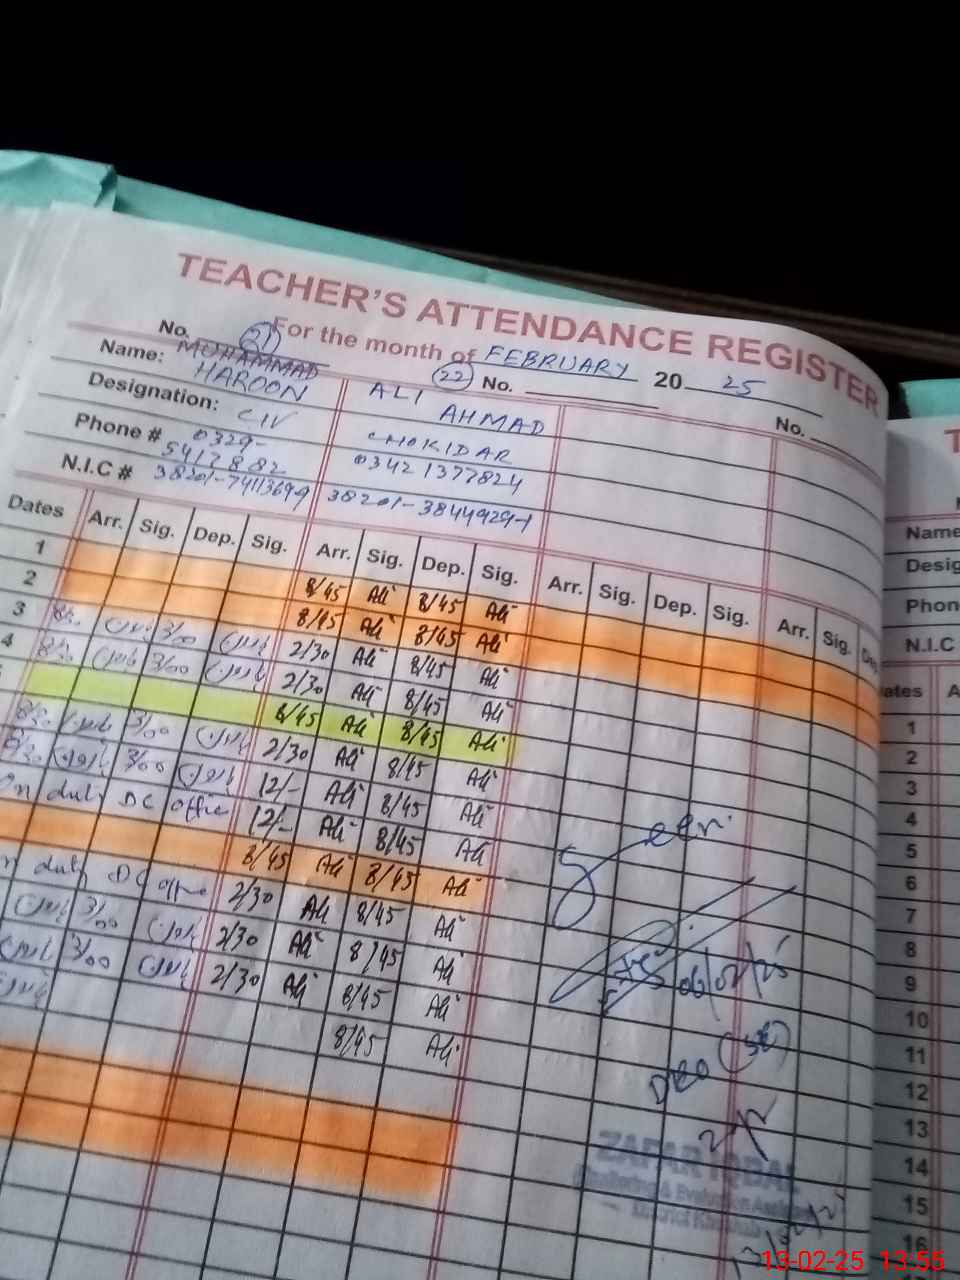 TEACHER'S ATTENDANCE REGISTER
For the month of FEBRUARY 2025
No. 21 (22) No. No.
Name: MUHAMMAD HAROON ALI AHMAD
Designation: CIV CHOKIDAR
Phone # 0329-5417882 0342 1377824
N.I.C # 38201-7411369-9 38201-3844929-1
Dates Arr. Sig. Dep. Sig. Arr. Sig. Dep. Sig. Arr. Sig. Dep. Sig. Arr. Sig.
1 8/45 Ali 8/45 Ali
2 8/45 Ali 8/45 Ali
3 3/00 2/30 Ali 8/45 Ali
4 3/00 2/30 Ali 8/45 Ali
8/45 Ali 8/45 Ali
3/00 2/30 Ali 8/45 Ali
3/00 12/- Ali 8/45 Ali
On duty DC office 12/- Ali 8/45 Ali
8/45 Ali 8/45 Ali
duty DC office 2/30 Ali 8/45 Ali
3/00 2/30 Ali 8/45 Ali
3/00 2/30 Ali 8/45 Ali
8/45 Ali
Seen
06/02/25
DEO (SE)
ZAFAR IQBAL
Monitoring & Evaluation Assistant
District Khushab
Name
Desig
Phon
N.I.C
ates A
1
2
3
4
5
6
7
8
9
10
11
12
13
14
15
16
13-02-25 13:55